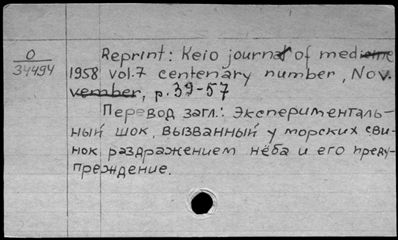 О
34494
Reprint: Keio journal of medicine
1958 vol.7 centenary number, Nov.
vember, p. 39-57
Перевод загл.: Эксперименталь-
ный шок, вызванный у морских сви-
нок раздражением нёба и его преду-
преждение.